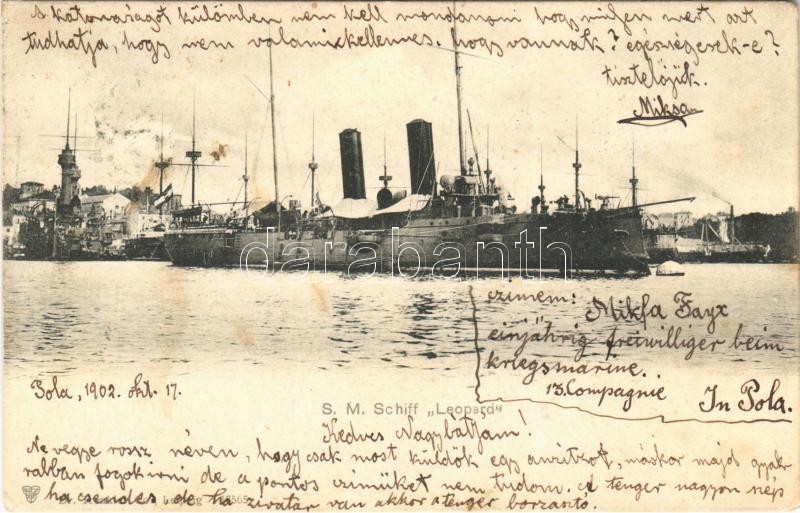 A katonaságot külömben nem kell mondanom hogy milyen mert azt
tudhatja, hogy nem valami kellemes, hogy vannak? egésségesek-e?
tisztelőjük.
Miksa
darabanth
czimem:
Miksa Fayx
einjährig freiwilliger beim
kriegsmarine.
13. Compagnie
In Pola.
Pola, 1902. okt. 17.
S. M. Schiff „Leopard"
Kedves Nagybátyám!
Ne vegye rossz néven, hogy csak most küldök egy anzitzot, máskor majd gyak
rabban fogok irni de a pontos czimüket nem tudom. A tenger nagyon szép
ha csendes de ha zivatar van akkor a tenger borzasztó.
Leipzig